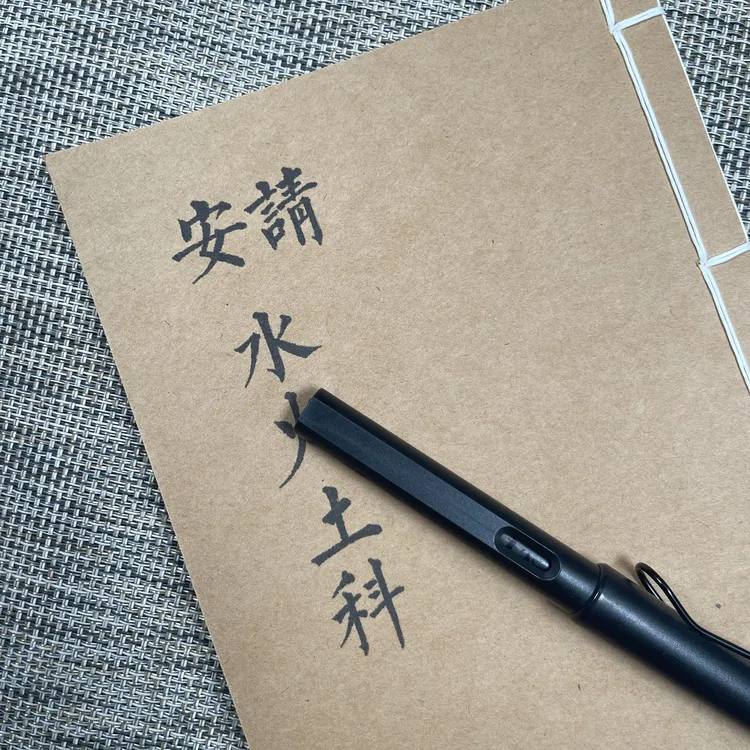 請安
水火土科